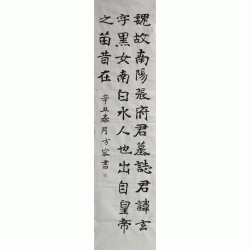 魏故南陽張府君墓誌君諱玄
字黑女南白水人也出自皇帝
之苗昔在
辛丑春月方容書